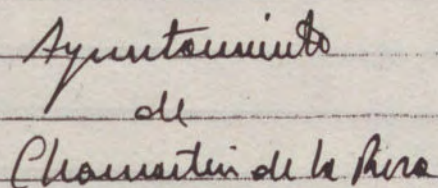 Ayuntamiento
de
Chamartin de la Rosa